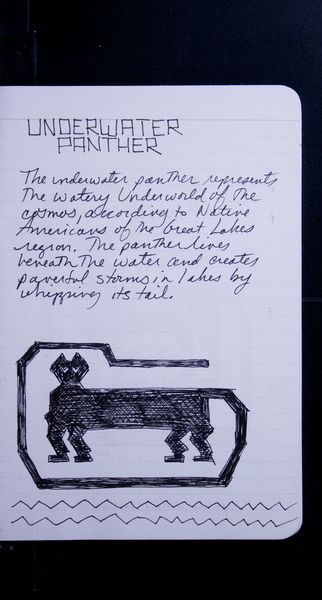 UNDERWATER
PANTHER
The underwater panther represents
The Watery Underworld of The
cosmos, according to Native
Americans of the Great Lakes
region. The panther lives
beneath The water and creates
powerful storms in lakes by
whipping its tail.